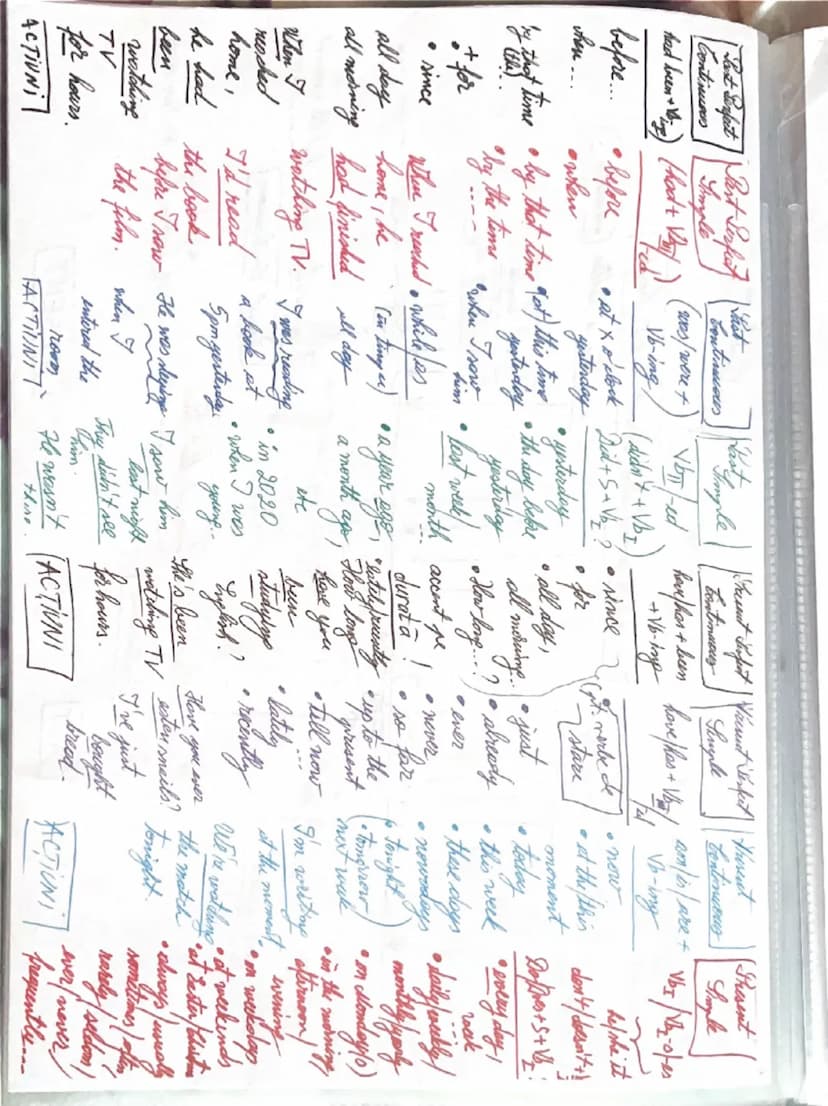 Past Perfect
Continuous
had been + Vb-
before...
when...
by that time
(the)...
+ • for
• since
all day
all morning
When I
reached
home,
he had
been
watching
TV
for hours.
ACTIUNI
Past Perfect
Simple
(had + Vb III/
ed)
• before
• when
• by that time
• by the time
....
When I reached
home, he
had finished
watching TV.
I'd read
the book
before I saw
the film.
Past
Continuous
(was/were +
Vb-ing)
• at x o'clock
yesterday
• (at) this time
yesterday
• when I saw
him
• while/as
(in timp ce)
all day
I was reading
a book at
5pm yesterday.
He was sleeping
when I
entered the
room
ACTIUNI
Past
Simple
Vb II/ed
(didn't + Vb I)
Did + S + Vb I ?
• yesterday
• the day before
yesterday
• last week/
month
...
• a year ago,
a month ago,
etc
• in 2020
• when I was
young..
I saw him
last night
They didn't see
him.
He wasn't
there.
Present Perfect
Continuous
have/has + been
+ Vb-ing
• since
• for
• all day,
all morning...
• How long...?
accent pe
durată !
• lately/recently
How long
have you
been
studying
English?
She's been
watching TV
for hours.
ACTIUNI
Present Perfect
Simple
have/has + Vb III/
ed
(pt. verbe de
stare
• just
• already
• ever
• never
• so far
• up to the
present
• till now
...
• lately
• recently
Have you ever
eaten snails?
I've just
bought
bread.
Present
Continuous
am/is/are +
Vb-ing
• now
• at the/this
moment
• today
• this week
• these days
• nowadays
(• tonight
• tomorrow)
next week
I'm writing
at the moment.
We're watching
the match
tonight.
ACTIUNI
Present
Simple
Vb I / Vb I -s/es
he/she/it
don't/doesn't +
Do/Does + S + Vb I ?
• every day,
week
....
• daily/weekly/
monthly/yearly
• on Monday(s)
• in the morning,
afternoon/
evening
• on weekdays
• at weekends
• at Easter/
• always/usually
sometimes/often
rarely/seldom/
ever/never/
frequently....